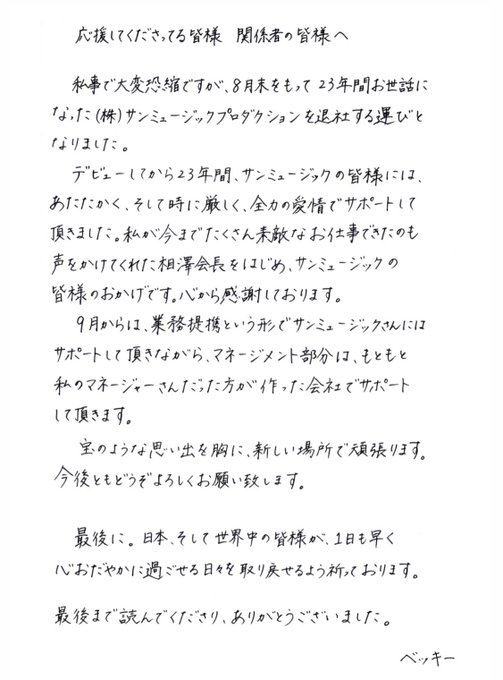 応援してくださってる皆様　関係者の皆様へ
私事で大変恐縮ですが、8月末をもって23年間お世話に
なった(株)サンミュージックプロダクションを退社する運びと
なりました。
デビューしてから23年間、サンミュージックの皆様には、
あたたかく、そして時に厳しく、全力の愛情でサポートして
頂きました。私が今までたくさん素敵なお仕事できたのも
声をかけてくれた相澤会長をはじめ、サンミュージックの
皆様のおかげです。心から感謝しております。
9月からは、業務提携という形でサンミュージックさんには
サポートして頂きながら、マネージメント部分は、もともと
私のマネージャーさんだった方が作った会社でサポート
して頂きます。
宝のような思い出を胸に、新しい場所で頑張ります。
今後ともどうぞよろしくお願い致します。
最後に。日本、そして世界中の皆様が、1日も早く
心おだやかに過ごせる日々を取り戻せるよう祈っております。
最後まで読んでくださり、ありがとうございました。
ベッキー